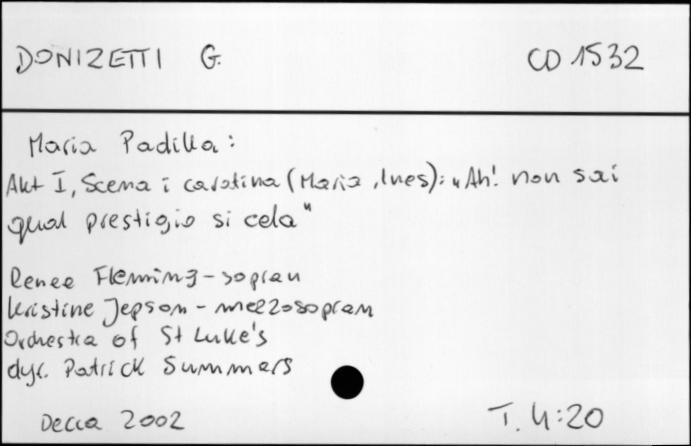 DONIZETTI G. CD 1532
Maria Padilla:
Akt I, Scena i cavatina (Maria, Ines): "Ah! non sai
qual prestigio si cela"
Renee Fleming - sopran
Kristine Jepson - mezzosopran
Orchestra of St Luke's
dyr. Patrick Summers
Decca 2002 T. 4:20